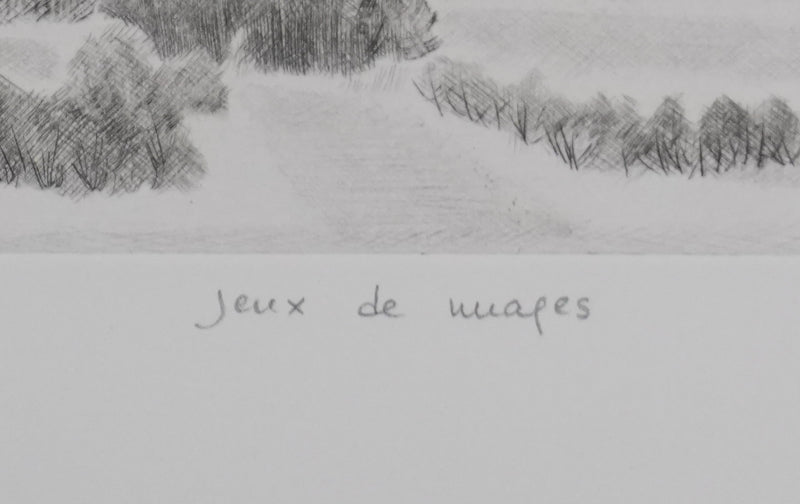 Jeux de nuages